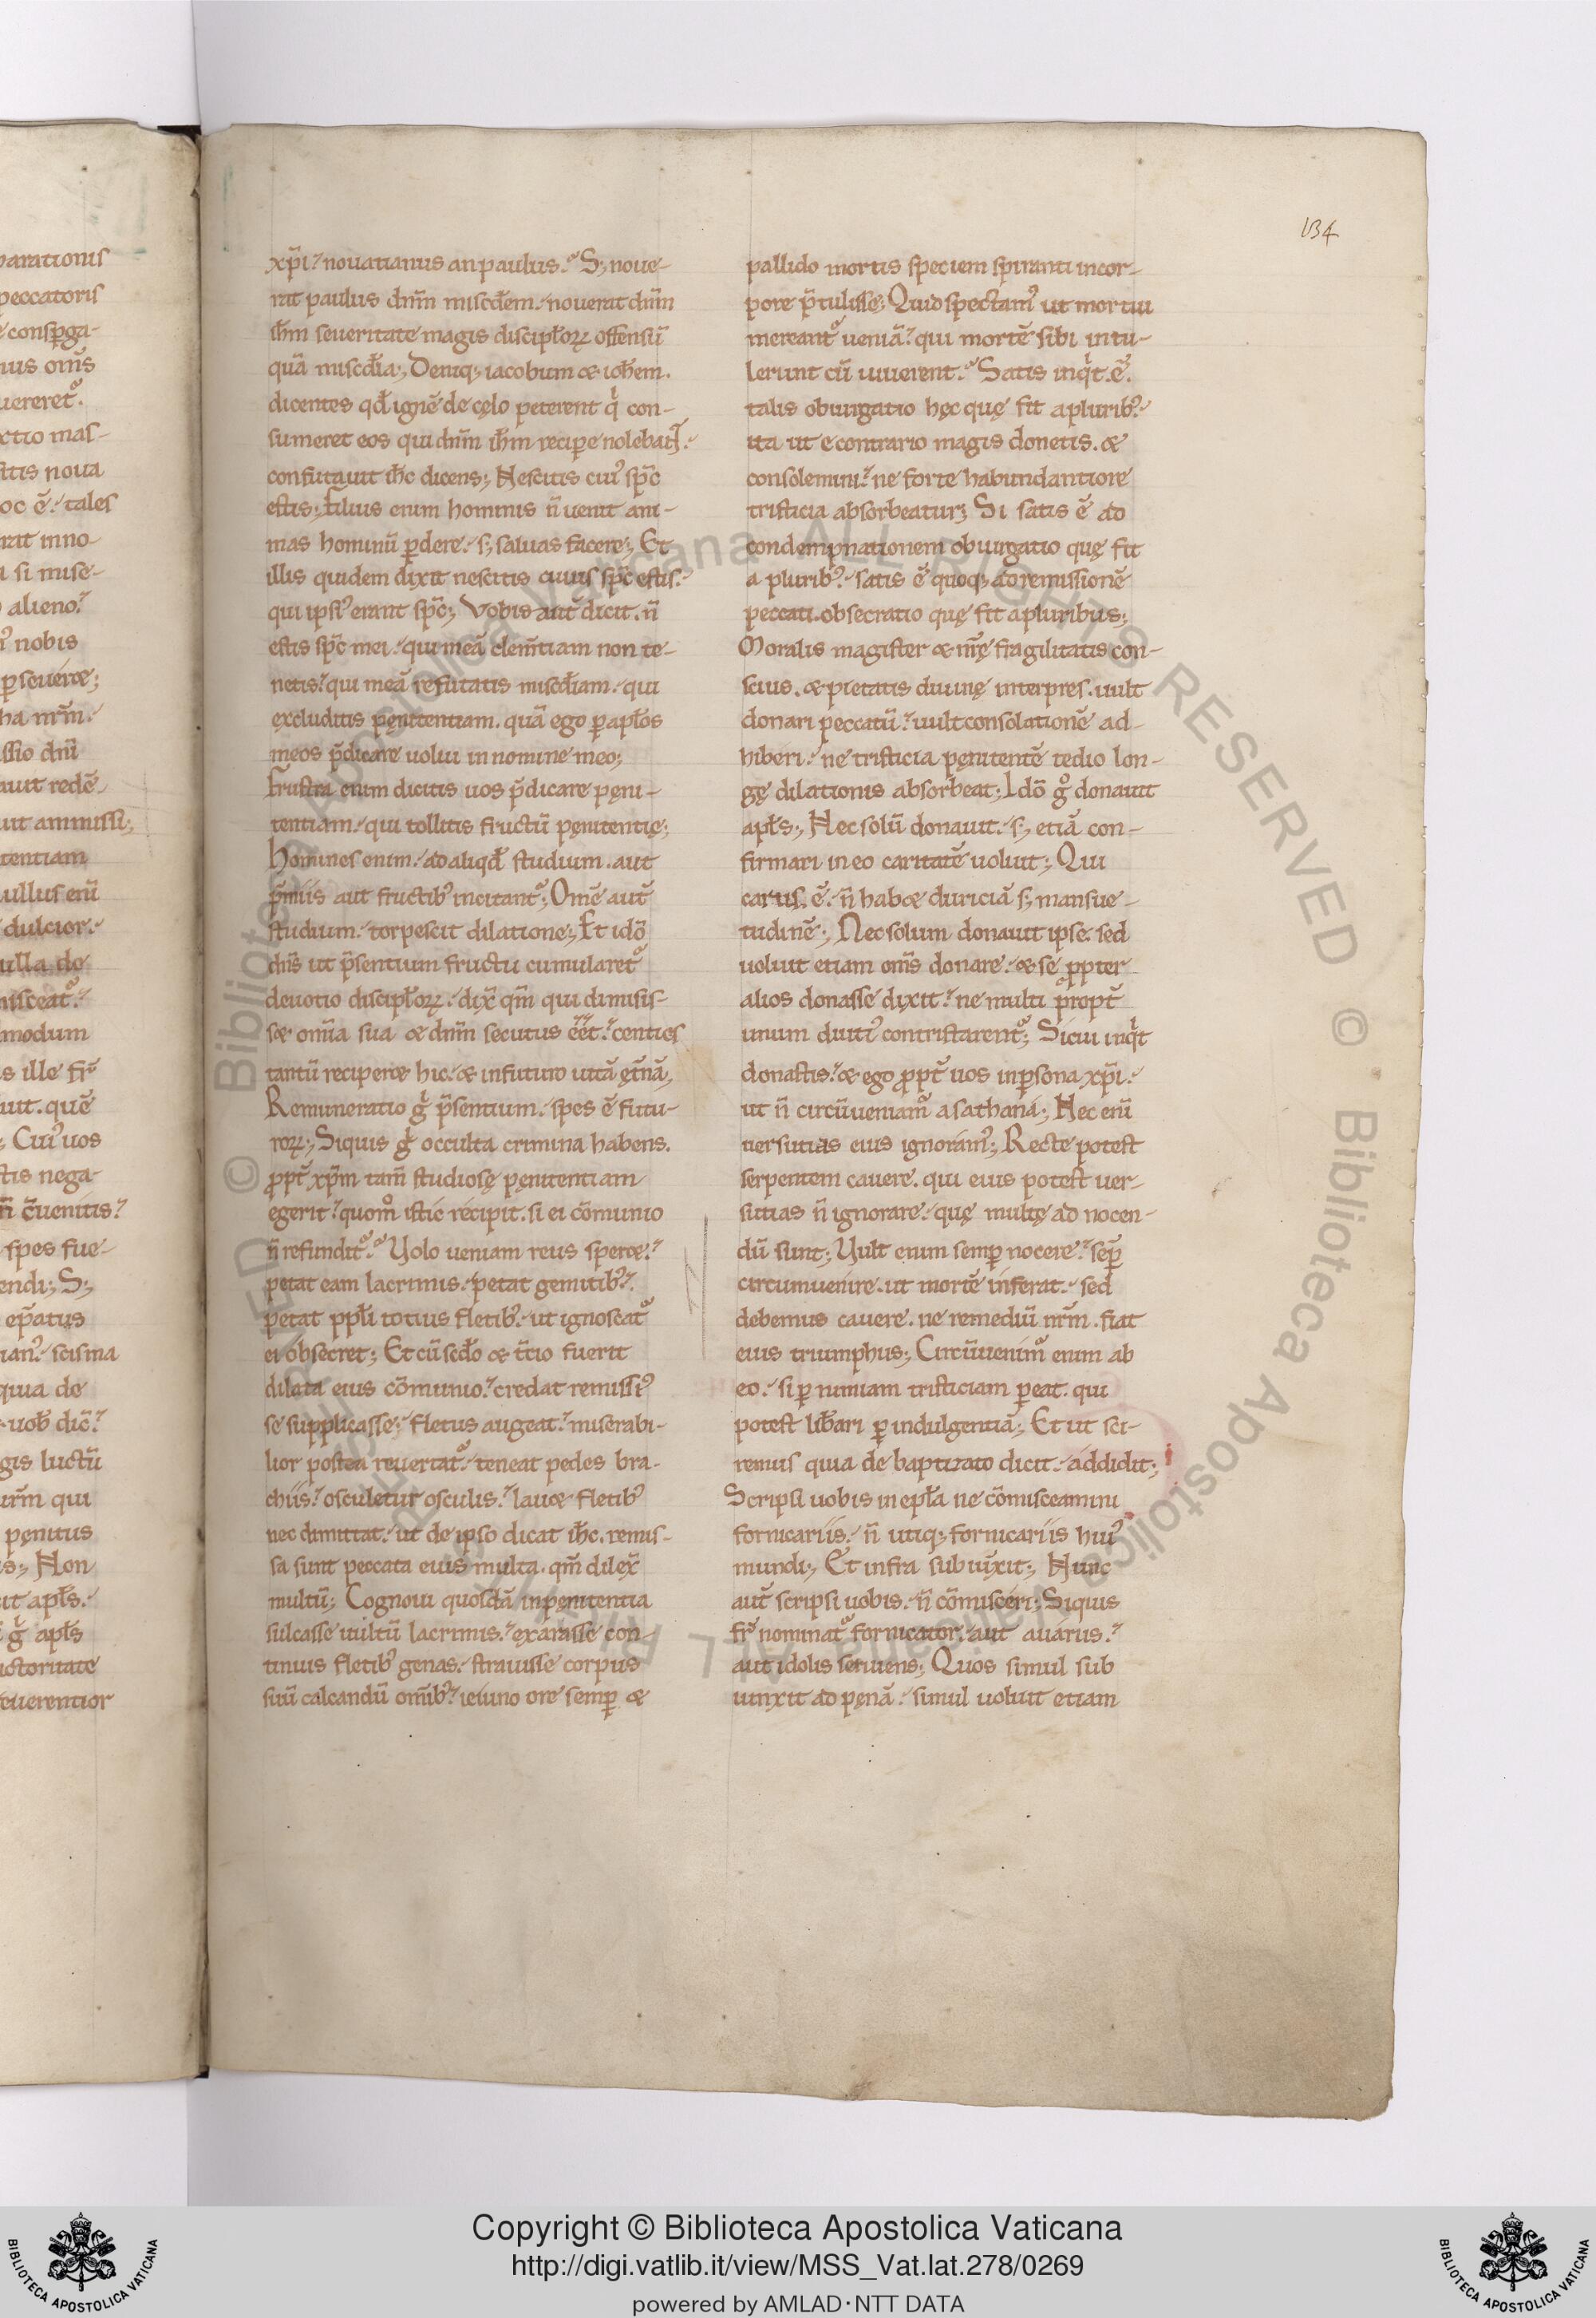 134
parationis
peccatoris
consp̱ga-
nus om̄s
uereret᷒.
ctio mas-
stis noua
oc ē. tales
rat inno-
si mise-
alieno.
nobis
ꝑseuerꝫ;
ha nr̄m.
ssio dn̄i
auit redē-
uit ammissi;
tentiam
ullus eni᷒
dulcior.
ulla de
misceat᷒.
modum
s ille fr̄
uit. quē
Cui᷒ uos
ctis nega-
n̄ c̄uenitis.
spes fue-
endi; S;
ep̄atus
ian᷒. scisma
quia de
uob̄ dic̄.
gis luctū
ur̄m qui
pęnitus
s; Non
it apłs.
g̊ apłs
uctoritate
euerentior
xp̄i. nouatianus an paulus. S; noue-
rat paulus dn̄m misc̄dem. nouerat dn̄m
ih̄m seueritate magis discipłoꝝ offensū
quā misc̄dia; Deniqꝫ iacobum & ioh̄em.
dicentes qđ ignē de cęlo peterent q̇ con-
sumeret eos qui dn̄m ih̄m reciꝑe nolebant.
confutauit ih̄c dicens; Nescitis cui᷒ sp̄c
estis; Filius enim hominis n̄ uenit ani-
mas hominū ꝑdere. s; saluas facere; Et
illis quidem dixit nescitis cuius sp̄c estis.
qui ipsi᷒ erant sp̄c; Vobis aut̄ dicit. n̄
estis sp̄c mei. qui meā clem̄tiam non te-
netis. qui meā refutatis misc̄diam. qui
excluditis pęnitentiam. quā ego ꝑ apłos
meos p̄dicare uolui in nomine meo;
Frustra enim dicitis uos p̄dicare pęni-
tentiam. qui tollitis fructū pęnitentię;
Homines enim. ad aliqđ studium. aut
p̄miis aut fructib᷒ incitant᷒; Om̄e aut̄
studium. torpescit dilatione; Et idō
dn̄s ut p̄sentium fructu cumularet᷒
deuotio discipłoꝝ. dix̄ qm̄ qui dimisis-
s& om̄ia sua & dn̄m secutus eēt. centies
tantū reciper& hic. & in futuro uitā ęt̄nā,
Remuneratio g̊ p̄sentium. spes ē futu-
roꝝ; Siquis g̊ occulta crimina habens.
ꝓpt̄ xp̄m tam̄ studiosę pęnitentiam
egerit. quom̊ istic recipit. si ei cōmunio
n̄ refundit᷒. Uolo ueniam reus sper&.
petat eam lacrimis. petat gemitib᷒.
petat ppłi totius fletib᷒. ut ignoscat᷒
ei obsecret; Et cū sed̄o & t̄cio fuerit
dilata eius cōmunio. credat remissi᷒
se supplicasse; fletus augeat. miserabi-
lior postea reuertat᷒. teneat pedes bra-
chiis. osculetur osculis. lau& fletib᷒
nec dimittat. ut de ipso dicat ih̄c. remis-
sa sunt peccata eius multa. qm̄ dilex̄
multū; Cognoui quosdā in pęnitentia
sulcasse uultū lacrimis. exarasse con-
tinuis fletib᷒ genas. strauisse corpus
suū calcandū om̄ib᷒. ieiuno ore semꝑ &
pallido mortis speciem spiranti in cor-
pore p̄tulisse; Quid spectam᷒ ut mortui
mereant᷒ ueniā. qui mortē sibi intu-
lerunt cū uiuerent. Satis inq̇t. ē.
talis obiurgatio hęc quę fit a plurib᷒.
ita ut e contrario magis donetis. &
consolemini. ne forte habundantiore
tristicia absorbeatur; Si satis ē ad
condempnationem obiurgatio quę fit
a plurib᷒. satis ē quoqꝫ ad remissionē
peccati. obsecratio quę fit a pluribus;
Moralis magister & nr̄ę fragilitatis con-
scius. & pietatis diuinę interpres. uult
donari peccatū. uult consolationē ad-
hiberi. ne tristicia pęnitentē tedio lon-
gę dilationis absorbeat; Idō g̊ donauit
apłs; Nec solū donauit. s; etiā con-
firmari in eo caritatē uoluit; Qui
carus. ē. n̄ hab& duriciā s; mansue-
tudinē; Nec solum donauit ipse. sed
uoluit etiam om̄s donare. & se ꝓpter
alios donasse dixit. ne multi propt̄
unum diuti᷒ contristarent᷒; Sicui inq̇t
donastis. & ego ꝓpt̄ uos in ꝑsona xp̄i.
ut n̄ circūueniam᷒ a sathana; Nec eni᷒
uersutias eius ignoram᷒; Recte potest
serpentem cauere. qui eius potest uer-
sutias n̄ ignorare. quę multę ad nocen-
dū sunt; Uult enim semꝑ nocere. semꝑ
circumuenire. ut mortē inferat. sed
debemus cauere. ne remediū nr̄m. fiat
eius triumphus; Circūuenim᷒ enim ab
eo. si ꝑ nimiam tristiciam ꝑeat. qui
potest lib̄ari ꝑ indulgentiā; Et ut sci-
remus quia de baptizato dicit. addidit;
Scripsi uobis in epła ne cōmisceamini
fornicariis. n̄ utiqꝫ fornicariis hui᷒
mundi; Et infra subiūxit; Nunc
aut̄ scripsi uobis. n̄ cōmisceri; Siquis
fr̄ nominat᷒ fornicator. aut auarus.
aut idolis seruiens; Quos simul sub
uinxit ad pęnā. simul uoluit etiam
Copyright © Biblioteca Apostolica Vaticana
http://digi.vatlib.it/view/MSS_Vat.lat.278/0269
powered by AMLAD·NTT DATA
BIBLIOTECA APOSTOLICA VATICANA
BIBLIOTECA APOSTOLICA VATICANA
© Biblioteca Apostolica Vaticana ALL RIGHTS RESERVED © Biblioteca Apostolica Vaticana ALL RIGHTS RESERVED